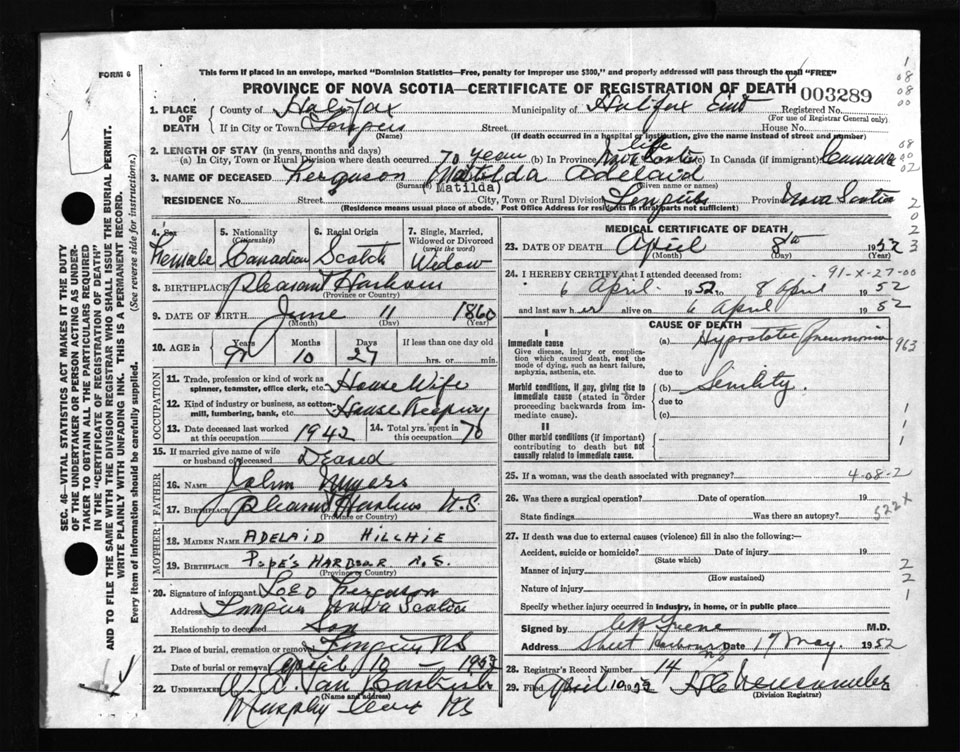 FORM 6
This form if placed in an envelope, marked "Dominion Statistics—Free, penalty for improper use $300," and properly addressed will pass through the mail "FREE"
PROVINCE OF NOVA SCOTIA—CERTIFICATE OF REGISTRATION OF DEATH 003289
1. PLACE OF DEATH County of Halifax Municipality of Halifax East Registered No.
(For use of Registrar General only)
If in City or Town Street House No.
(Name) (If death occurred in a hospital or institution, give the name instead of street and number)
2. LENGTH OF STAY (in years, months and days)
(a) In City, Town or Rural Division where death occurred 70 year (b) In Province life Nova Scotia (c) In Canada (if immigrant) Canada
3. NAME OF DECEASED Ferguson Matilda Adelaid
(Surname) (Matilda) (Given name or names)
RESIDENCE No. Street City, Town or Rural Division Province Nova Scotia
(Residence means usual place of abode. Post Office Address for residents in rural parts not sufficient)
4. Sex Female
5. Nationality (Citizenship) Canadian
6. Racial Origin Scotch
7. Single, Married, Widowed or Divorced (write the word) Widow
8. BIRTHPLACE Pleasant Harbour
(Province or Country)
9. DATE OF BIRTH June 11 1860
(Month) (Day) (Year)
10. AGE in Years 91 Months 10 Days 27 If less than one day old
hrs. or min.
OCCUPATION
11. Trade, profession or kind of work as spinner, teamster, office clerk, etc. House Wife
12. Kind of industry or business, as cotton-mill, lumbering, bank, etc. House Keeping
13. Date deceased last worked at this occupation 1942 14. Total yrs. spent in this occupation 70
15. If married give name of wife or husband of deceased Deased
FATHER
16. NAME John Myers
17. BIRTHPLACE Pleasant Harbour N.S.
(Province or Country)
MOTHER
18. MAIDEN NAME ADELAID HILCHIE
19. BIRTHPLACE POPE'S HARBOUR N.S.
(Province or Country)
20. Signature of informant Ferguson
Address Nova Scotia
Relationship to deceased Son
21. Place of burial, cremation or removal N.S.
Date of burial or removal April 10 — 1952
22. UNDERTAKER
(Name and address)
Murphy Cove NS
MEDICAL CERTIFICATE OF DEATH
23. DATE OF DEATH April 8th 1952
(Month) (Day) (Year)
91-X-27-00
24. I HEREBY CERTIFY that I attended deceased from:
6 April 1952 to 8 April 1952
and last saw her alive on 6 April 1952
CAUSE OF DEATH
I
Immediate cause
Give disease, injury or complication which caused death, not the mode of dying, such as heart failure, asphyxia, asthenia, etc.
(a) Hypostatic Pneumonia 963
due to
Morbid conditions, if any, giving rise to immediate cause (stated in order proceeding backwards from immediate cause).
(b) Senility.
due to
(c)
II
Other morbid conditions (if important) contributing to death but not causally related to immediate cause.
25. If a woman, was the death associated with pregnancy? 4-08-2
26. Was there a surgical operation? Date of operation 19
State findings Was there an autopsy? 522X
27. If death was due to external causes (violence) fill in also the following:—
Accident, suicide or homicide? Date of injury 19
(State which)
Manner of injury
(How sustained)
Nature of injury
Specify whether injury occurred in industry, in home, or in public place
Signed by M.D.
Address Sheet Harbour NS Date 17 May. 1952
28. Registrar's Record Number 14
29. Filed April 10 1952
(Division Registrar)
SEC. 46—VITAL STATISTICS ACT MAKES IT THE DUTY
OF THE UNDERTAKER OR PERSON ACTING AS UNDER-
TAKER TO OBTAIN ALL THE PARTICULARS REQUIRED
IN THE "CERTIFICATE OF REGISTRATION OF DEATH"
AND TO FILE THE SAME WITH THE DIVISION REGISTRAR WHO SHALL ISSUE THE BURIAL PERMIT.
WRITE PLAINLY WITH UNFADING INK. THIS IS A PERMANENT RECORD.
Every item of information should be carefully supplied. (See reverse side for instructions.)